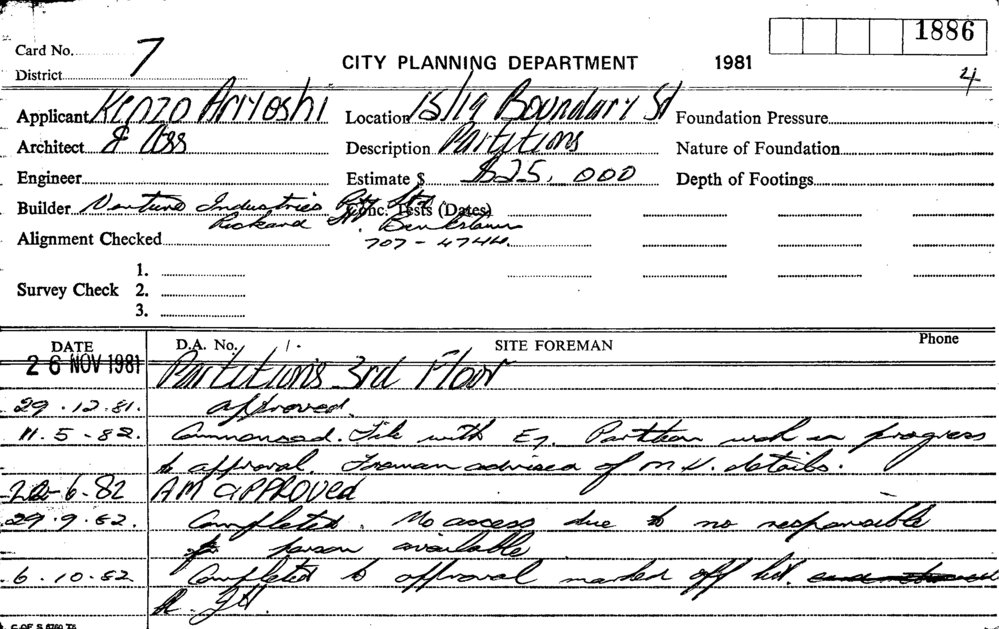 1886
Card No. 7
District
CITY PLANNING DEPARTMENT 1981
4
Applicant Kenzo Ariyoshi Location 15/19 Boundary St Foundation Pressure
Architect & Ass Description Partitions Nature of Foundation
Engineer Estimate $ $25,000 Depth of Footings
Builder Venture Industries Pty Ltd Conc. Tests (Dates)
Rickard Bankstown
Alignment Checked 707-4744
1.
Survey Check 2.
3.
DATE D.A. No. /. SITE FOREMAN Phone
26 NOV 1981 Partitions 3rd Floor
29.12.81. approved.
11.5-82. Commenced. File with Partition work in progress
to approval. Foreman advised of details.
6-82 AM APPROVED
29.9.82. Completed. No access due to no responsible
person available
6.10.82 Completed to approval marked off list.
C OF S